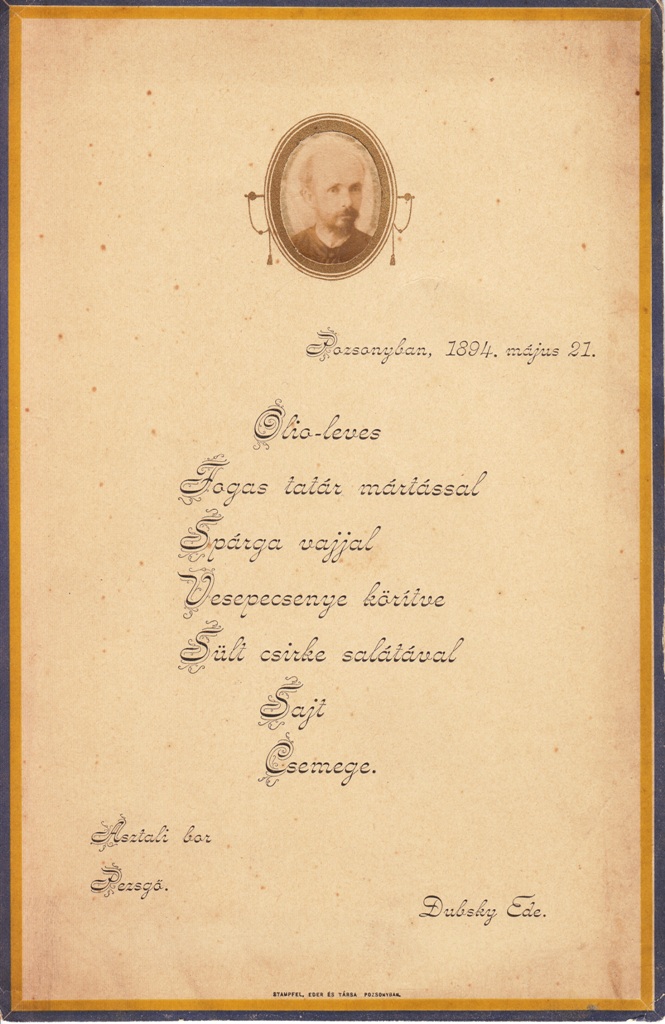 Pozsonyban, 1894. május 21.
Olio-leves
Fogas tatár mártással
Spárga vajjal
Vesepecsenye körítve
Sült csirke salátával
Sajt
Csemege.
Asztali bor
Pezsgő.
Dubsky Ede.
STAMPFEL, EDER ÉS TÁRSA POZSONYBAN.